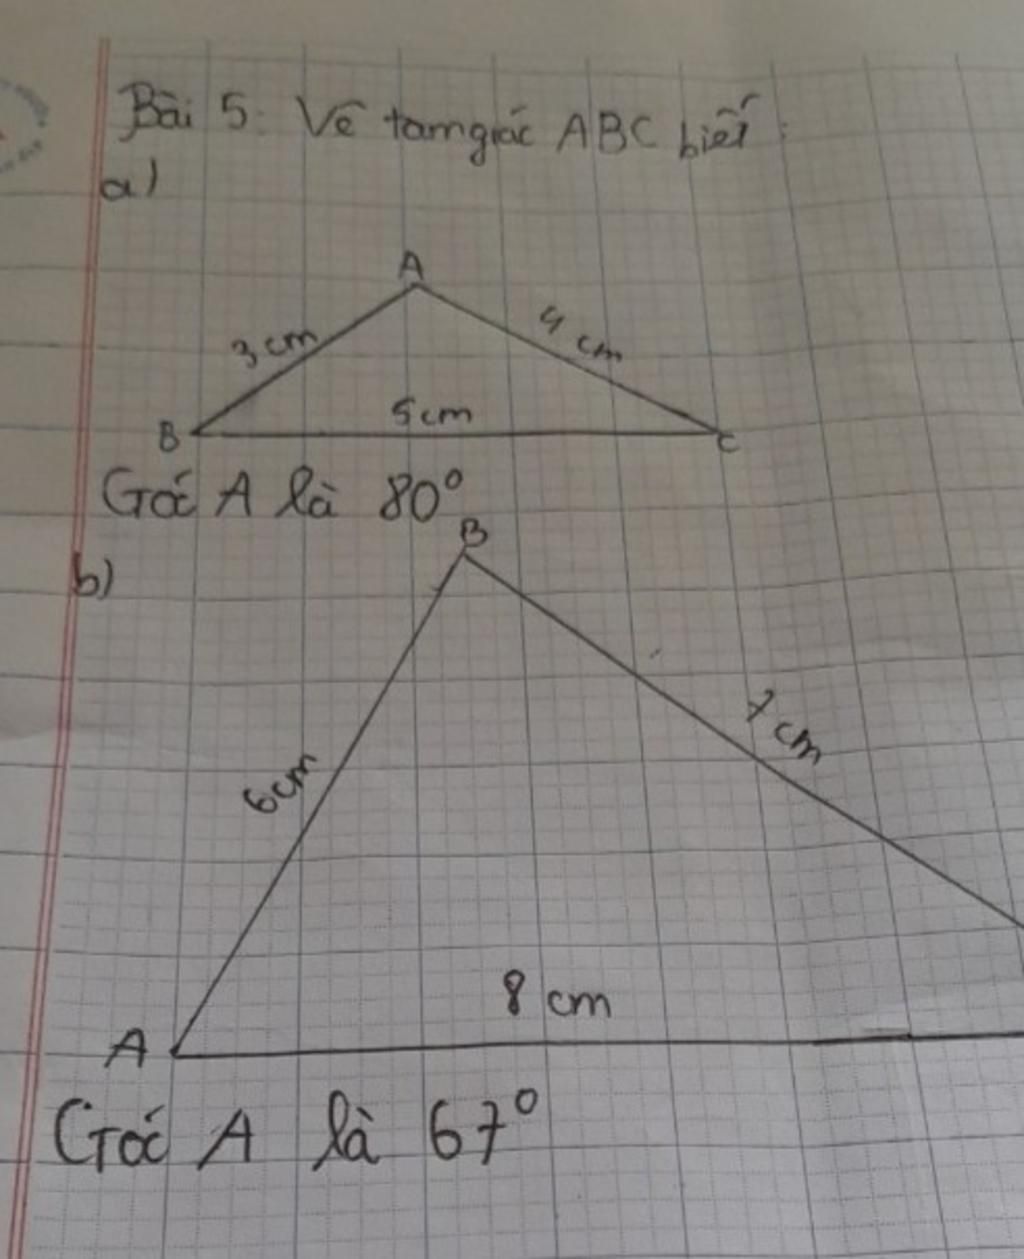 Bài 5: Vẽ tam giác ABC biết:
a)
A
3 cm
4 cm
5 cm
B
C
Góc A là 80°
B
b)
7 cm
6 cm
8 cm
A
Góc A là 67°